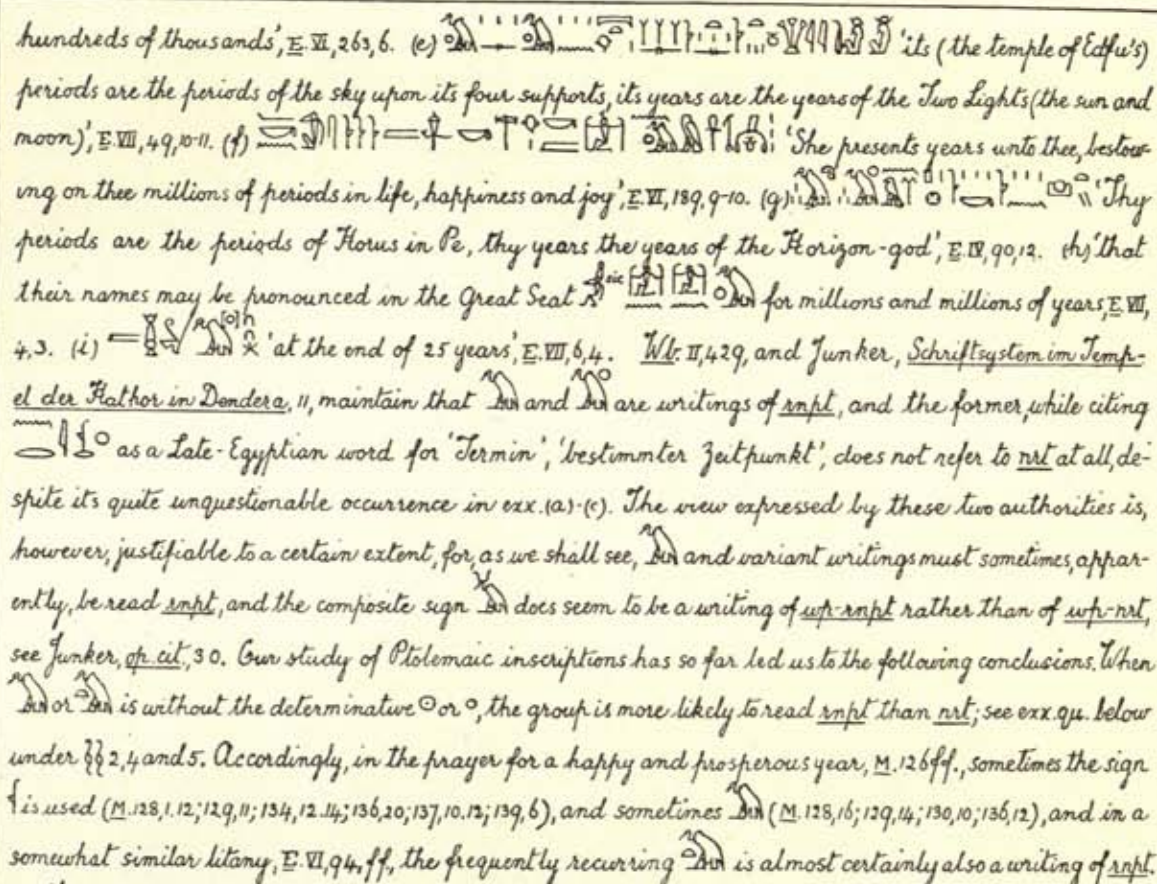 hundreds of thousands', E. VI, 263, 6. (e) 'its (the temple of Edfu's)
periods are the periods of the sky upon its four supports, its years are the years of the Two Lights (the sun and
moon)', E. VII, 49, 10-11. (f) 'She presents years unto thee, bestow-
ing on thee millions of periods in life, happiness and joy', E. VI, 189, 9-10. (g) 'Thy
periods are the periods of Horus in Pe, thy years the years of the Horizon-god', E. IV, 90, 12. (h) 'that
their names may be pronounced in the Great Seat sic for millions and millions of years, E. VII,
4, 3. (i) 'at the end of 25 years', E. VII, 6, 4. Wb. II, 429, and Junker, Schriftsystem im Temp-
el der Hathor in Dendera, 11, maintain that and are writings of rnpt, and the former, while citing
as a Late-Egyptian word for 'Termin', 'bestimmter Zeitpunkt', does not refer to nrt at all, de-
spite its quite unquestionable occurrence in exx. (a)-(c). The view expressed by these two authorities is,
however, justifiable to a certain extent, for, as we shall see, and variant writings must sometimes, appar-
ently, be read rnpt, and the composite sign does seem to be a writing of wp-rnpt rather than of wp-nrt,
see Junker, op. cit., 30. Our study of Ptolemaic inscriptions has so far led us to the following conclusions. When
or is without the determinative ☉ or °, the group is more likely to read rnpt than nrt; see exx. qu. below
under §§ 2, 4 and 5. Accordingly, in the prayer for a happy and prosperous year, M. 126 ff., sometimes the sign
is used (M. 128, 1. 12; 129, 11; 134, 12. 14; 136, 20; 137, 10. 12; 139, 6), and sometimes (M. 128, 16; 129, 14; 130, 10; 136, 12), and in a
somewhat similar litany, E. VI, 94, ff., the frequently recurring is almost certainly also a writing of rnpt.